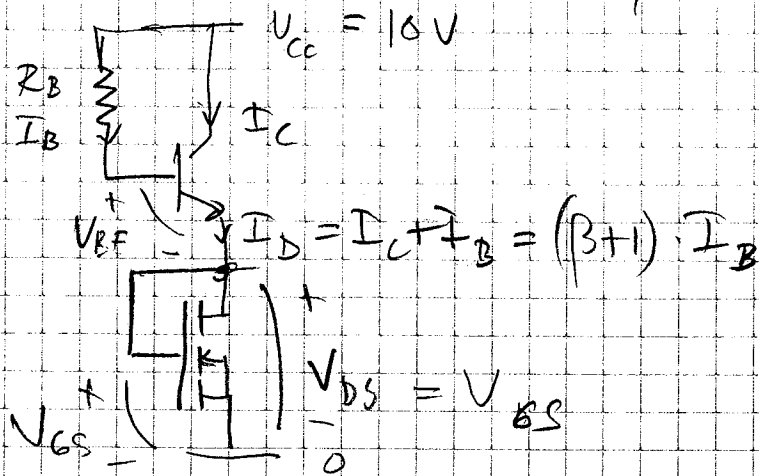 V_CC = 10V
R_B
I_B
I_C
+
V_BE
-
I_D = I_C + I_B = (β+1) · I_B
+
V_DS = V_GS
-
+
V_GS
-
0